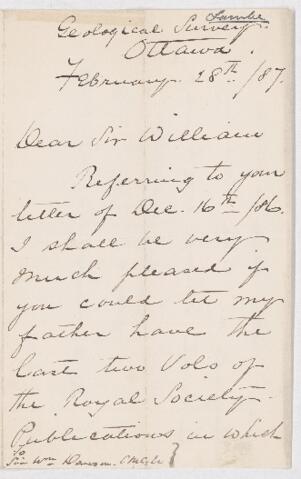 Lambe
Geological Survey.
Ottawa.
February 28th /87.
Dear Sir William
Referring to your
letter of Dec. 16th /86.
I shall be very
much pleased if
you could let my
father have the
last two Vols of
the Royal Society
Publications in which
To
Sir Wm Dawson. C.M.G. &c